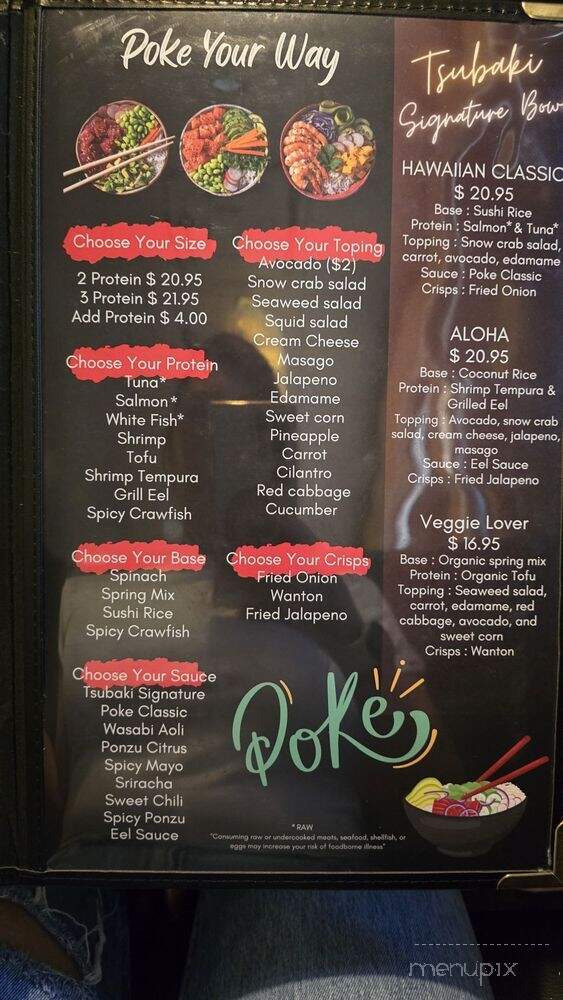 Poke Your Way
Choose Your Size
2 Protein $ 20.95
3 Protein $ 21.95
Add Protein $ 4.00
Choose Your Protein
Tuna*
Salmon*
White Fish*
Shrimp
Tofu
Shrimp Tempura
Grill Eel
Spicy Crawfish
Choose Your Base
Spinach
Spring Mix
Sushi Rice
Spicy Crawfish
Choose Your Sauce
Tsubaki Signature
Poke Classic
Wasabi Aoli
Ponzu Citrus
Spicy Mayo
Sriracha
Sweet Chili
Spicy Ponzu
Eel Sauce
Choose Your Toping
Avocado ($2)
Snow crab salad
Seaweed salad
Squid salad
Cream Cheese
Masago
Jalapeno
Edamame
Sweet corn
Pineapple
Carrot
Cilantro
Red cabbage
Cucumber
Choose Your Crisps
Fried Onion
Wanton
Fried Jalapeno
Poke
* RAW
"Consuming raw or undercooked meats, seafood, shellfish, or
eggs may increase your risk of foodborne illness"
Tsubaki
Signature Bow
HAWAIIAN CLASSIC
$ 20.95
Base : Sushi Rice
Protein : Salmon* & Tuna*
Topping : Snow crab salad,
carrot, avocado, edamame
Sauce : Poke Classic
Crisps : Fried Onion
ALOHA
$ 20.95
Base : Coconut Rice
Protein : Shrimp Tempura &
Grilled Eel
Topping : Avocado, snow crab
salad, cream cheese, jalapeno,
masago
Sauce : Eel Sauce
Crisps : Fried Jalapeno
Veggie Lover
$ 16.95
Base : Organic spring mix
Protein : Organic Tofu
Topping : Seaweed salad,
carrot, edamame, red
cabbage, avocado, and
sweet corn
Crisps : Wanton
menupix